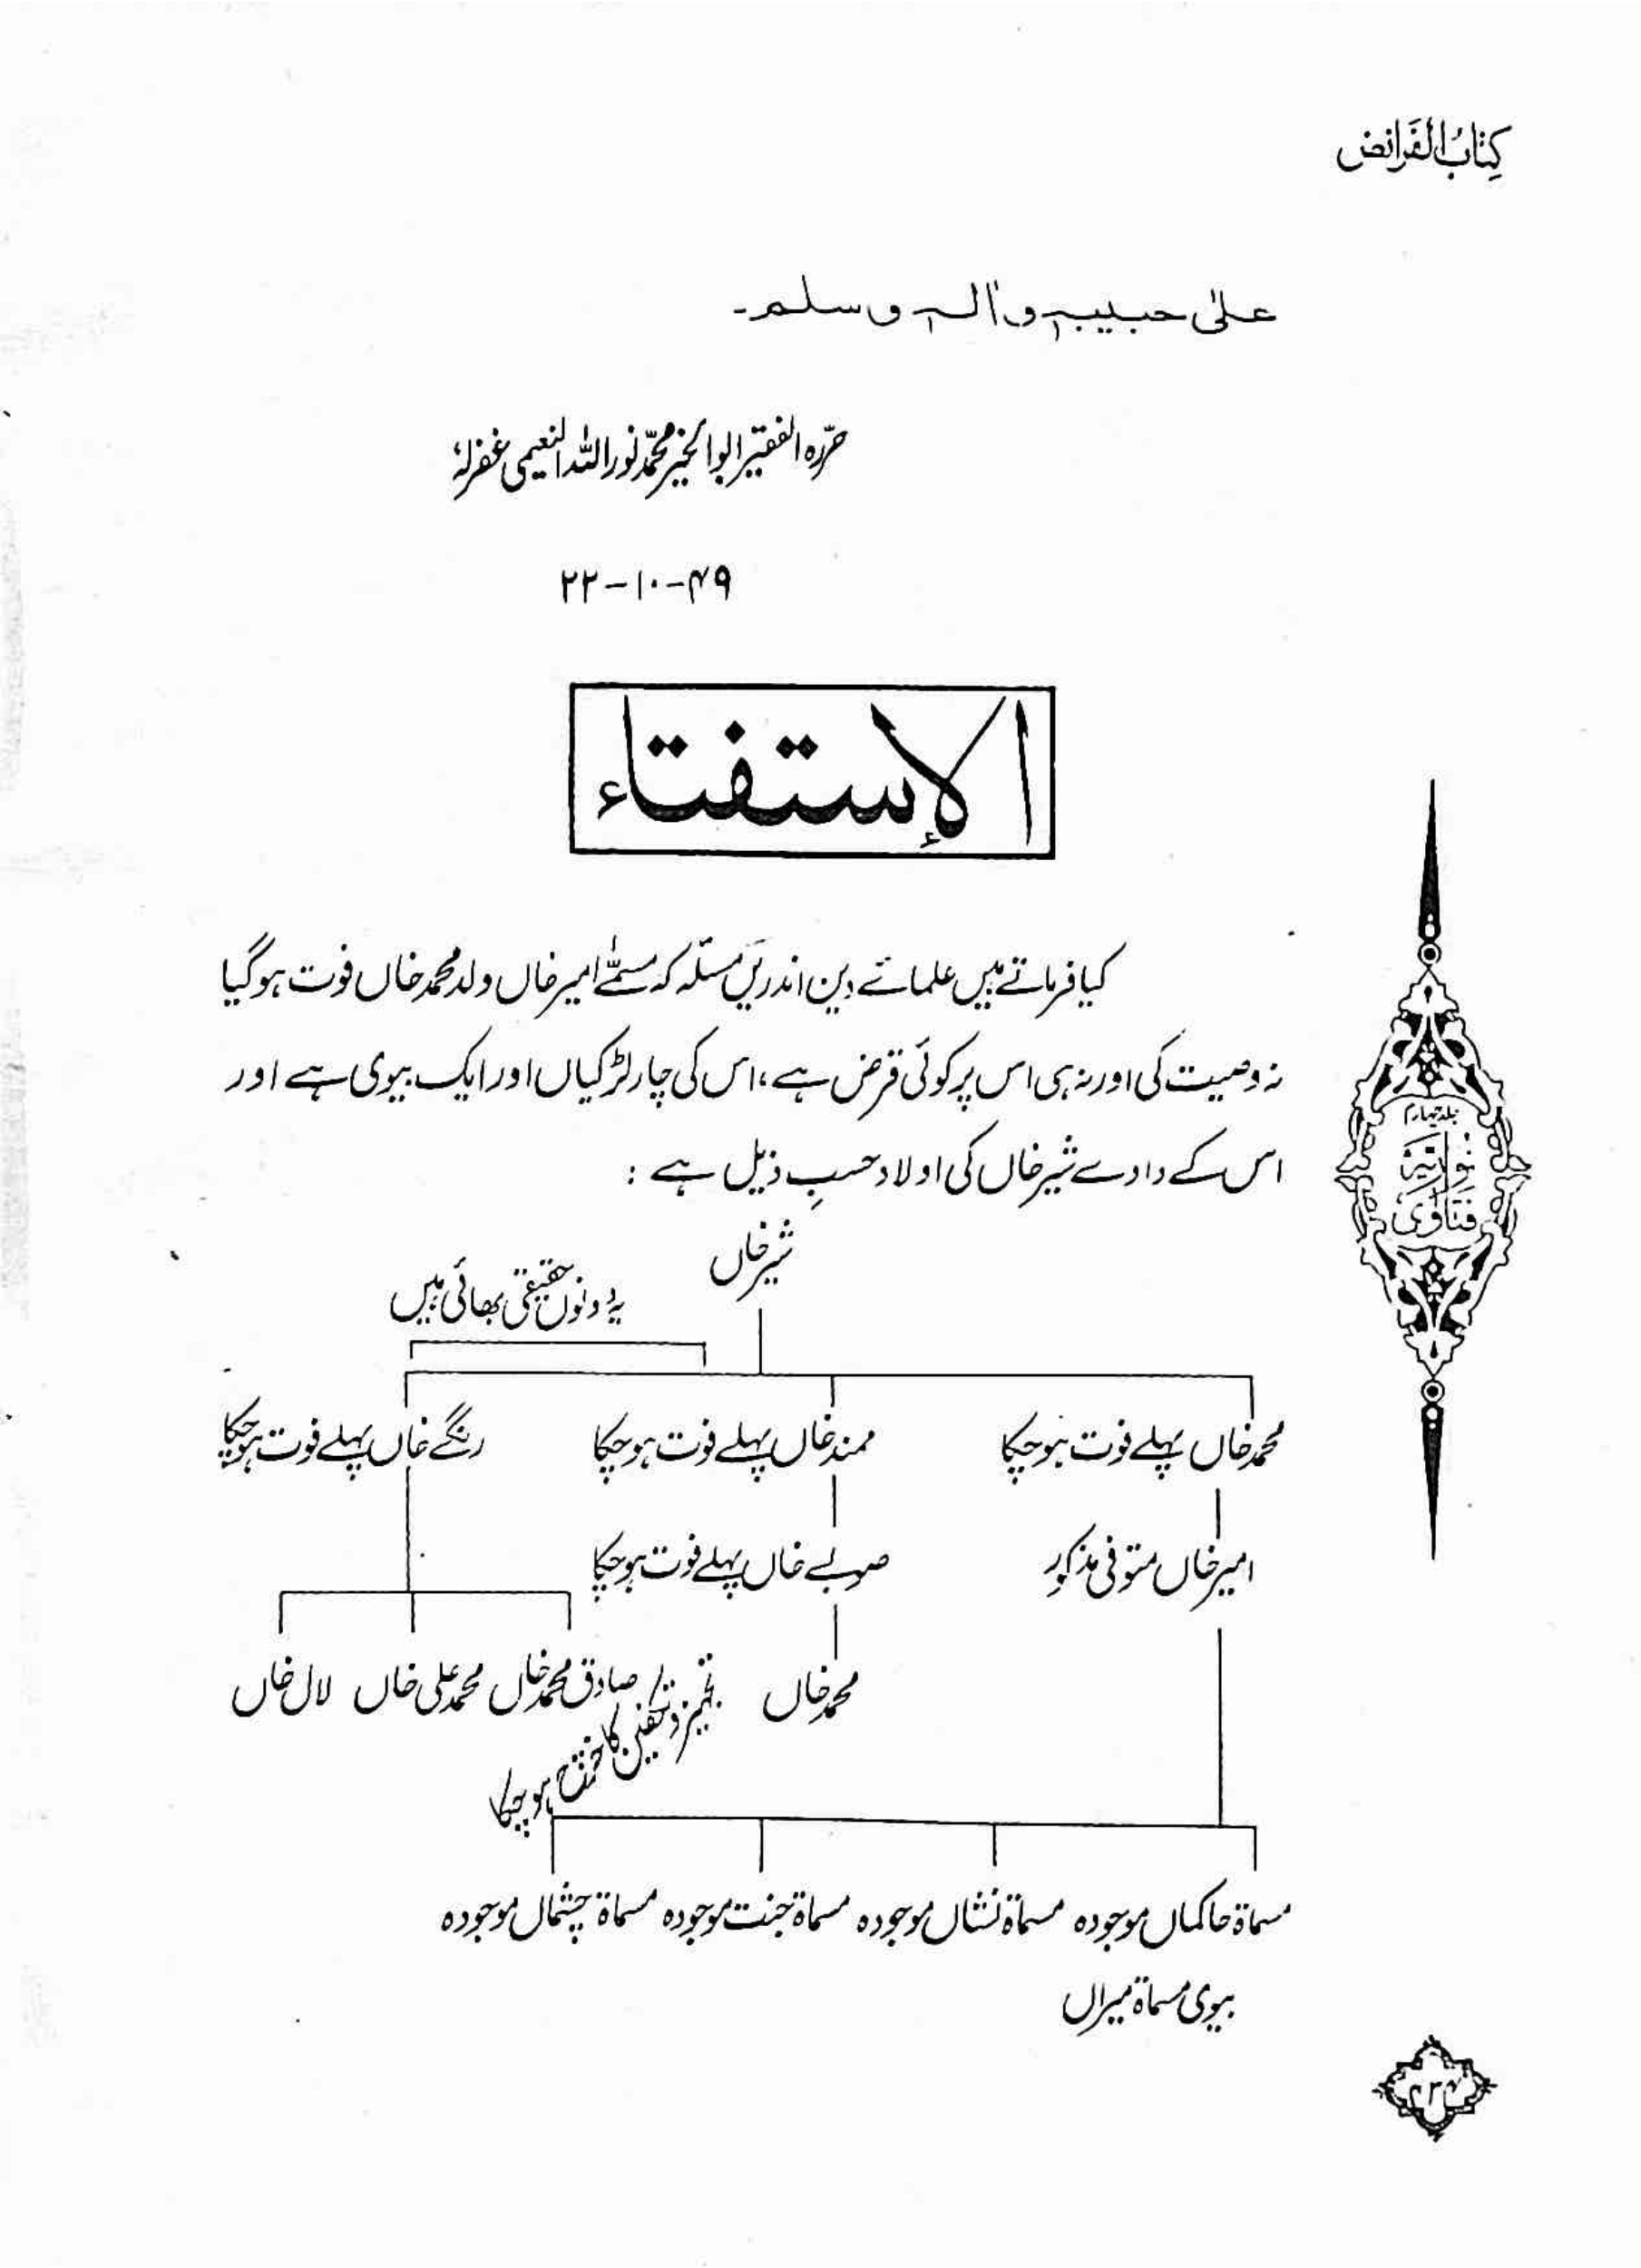 کِتَابُ الْفَرَائض
علیٰ حبیبہٖ و اٰلہٖ و سلم۔
حرّرہ الفقیر ابوالخیر محمّد نور اللہ النعیمی غفرلہٗ
۲۲-۱۰-۴۹
الإستفتاء
کیا فرماتے ہیں علمائے دین اندریں مسئلہ کہ مسمّٰے امیر خاں ولد محمد خاں فوت ہو گیا
نہ وصیت کی اور نہ ہی اس پر کوئی قرض ہے، اس کی چار لڑکیاں اور ایک بیوی ہے اور
اس کے دادے شیر خاں کی اولاد حسبِ ذیل ہے :
شیر خاں
یہ دونوں حقیقی بھائی ہیں
محمد خاں پہلے فوت ہوچکا
ممند خاں پہلے فوت ہوچکا
رنگے خاں پہلے فوت ہوچکا
امیر خاں متوفی مذکور
صوبے خاں پہلے فوت ہوچکا
محمد خاں
صادق محمد خاں
محمد علی خاں
لال خاں
تجہیز و تکفین کا خرچ ہو چکا
مسماۃ حاکماں موجودہ
مسماۃ نشاں موجودہ
مسماۃ جنت موجودہ
مسماۃ چشماں موجودہ
بیوی مسماۃ میراں
جلد چہارم
فتاویٰ نوریہ